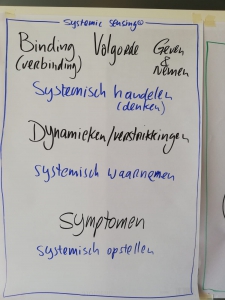 Systemic sensing
Binding Volgorde Geven
(verbinding) & Nemen
Systemisch handelen
(denken)
Dynamieken/verstrikkingen
systemisch waarnemen
Symptomen
systemisch opstellen